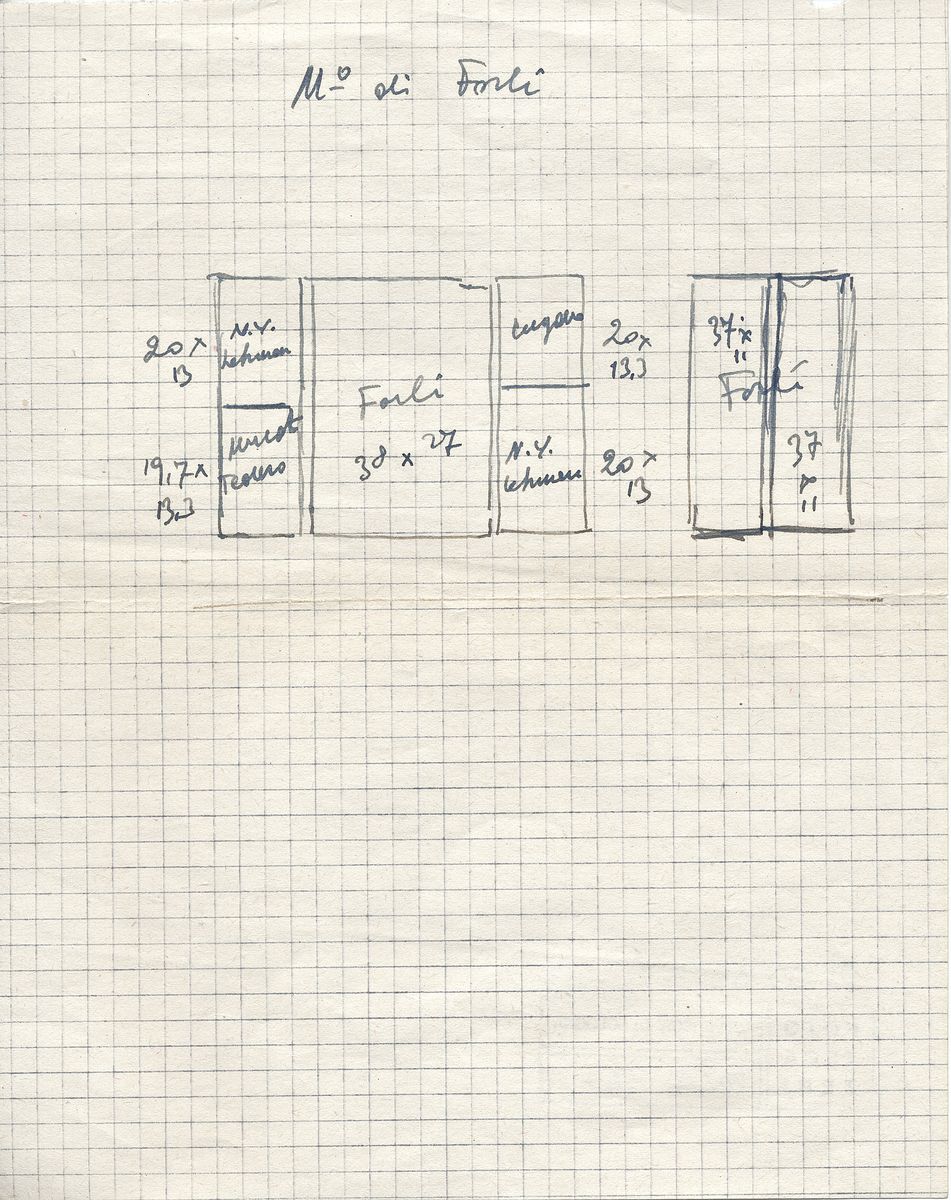 Mº di Forlì
20 x
13
N.Y.
Lehman
19,7 x
13,3
Tedesco
Forlì
38 x 27
Lugano
20 x
13,3
N.Y.
Lehman
20 x
13
37 x
11
Forlì
37
x
11